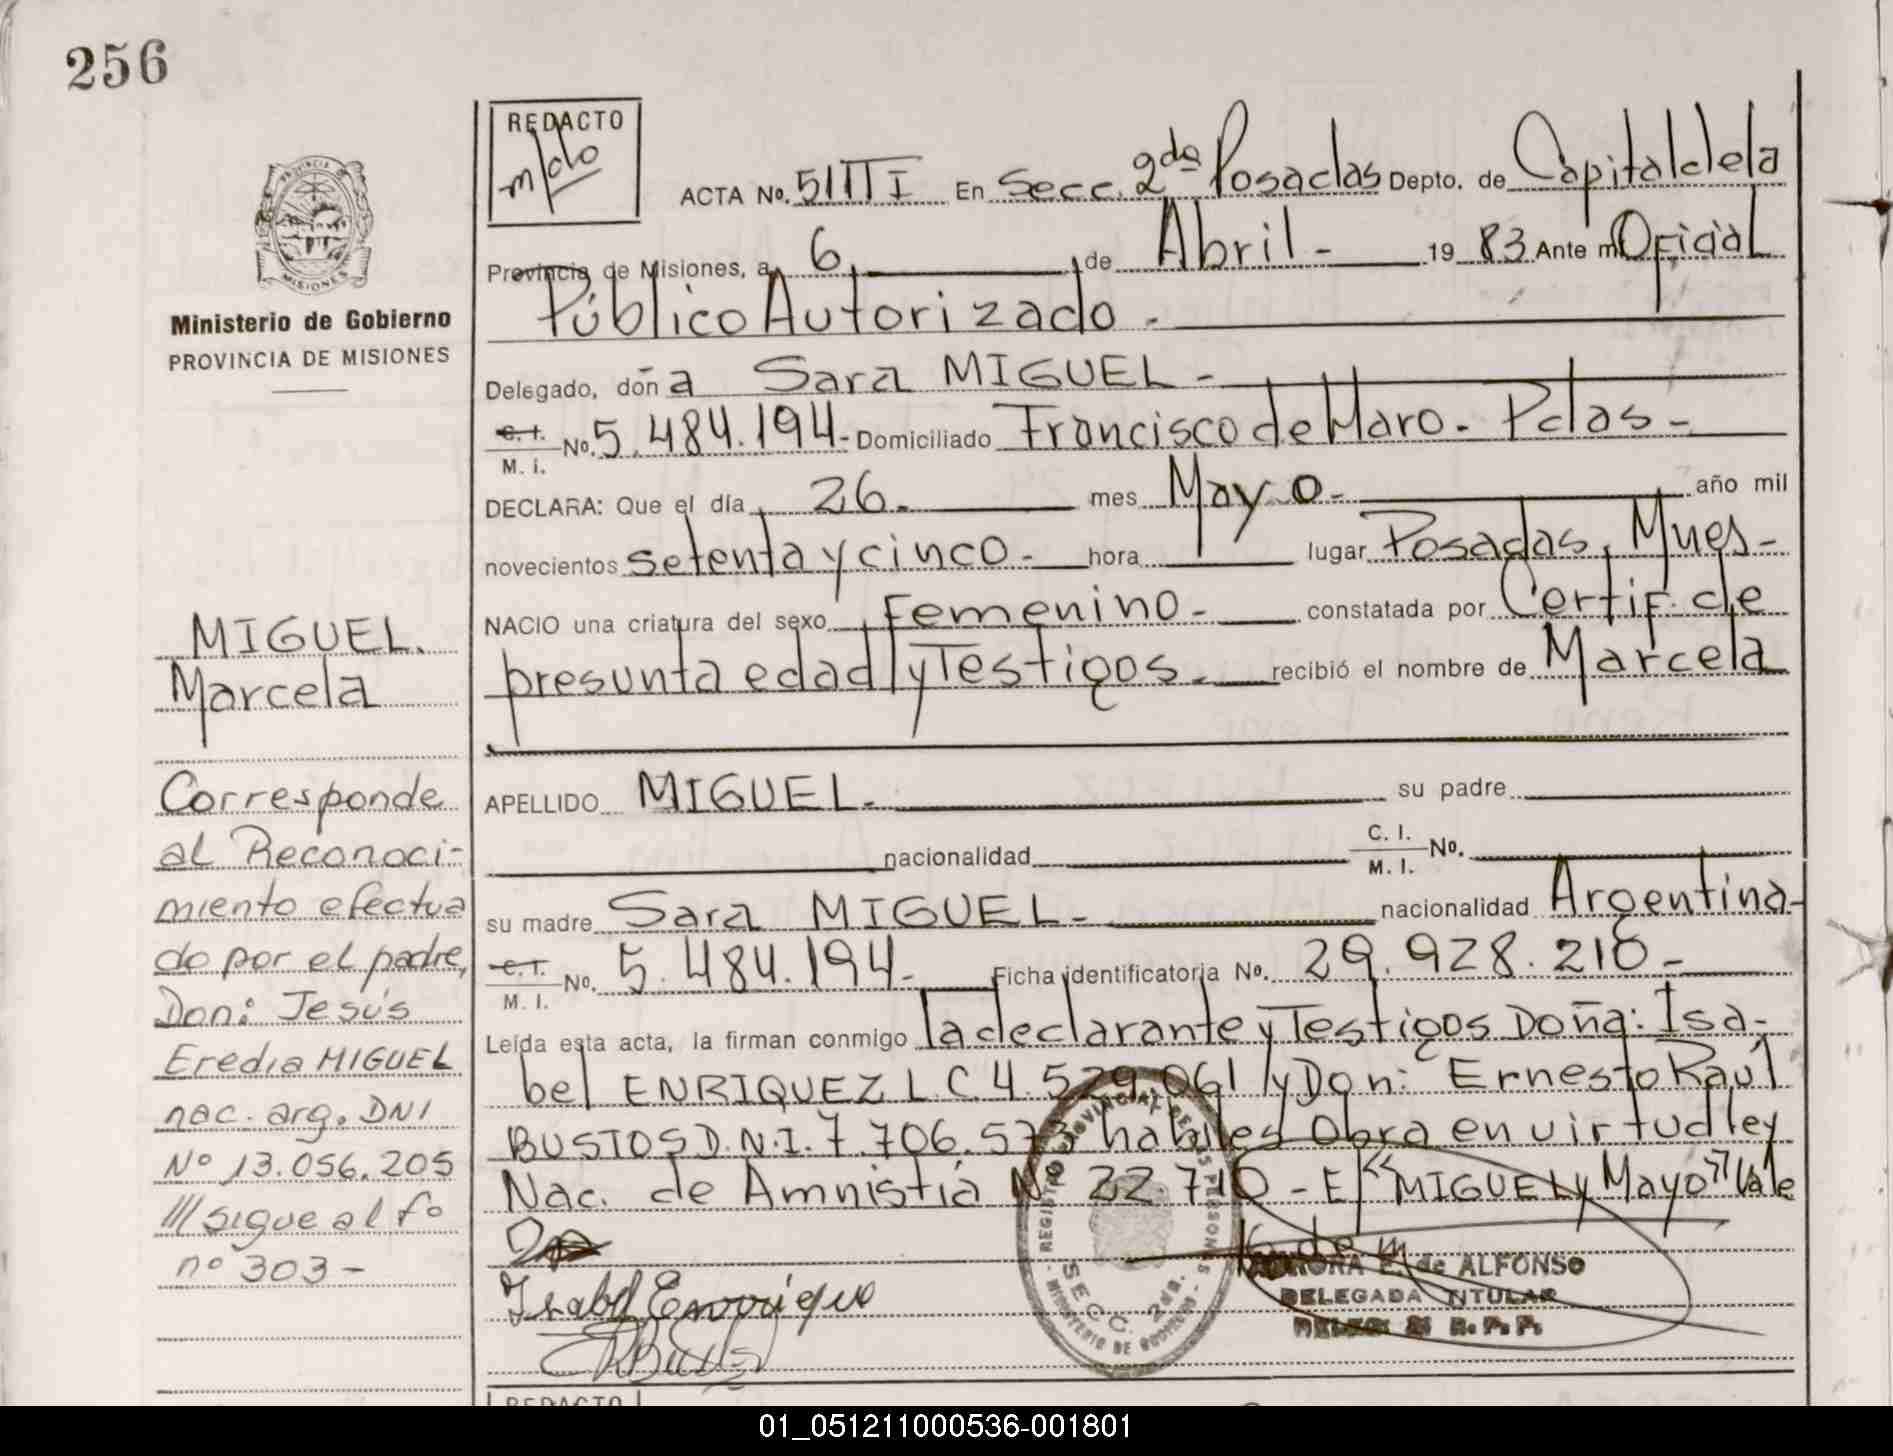 256
REDACTO
PROVINCIA
MISIONES
Ministerio de Gobierno
PROVINCIA DE MISIONES
ACTA No. 51 III I En Secc. 2da Posadas Depto. de Capital de la
Provincia de Misiones, a 6 de Abril - 1983 Ante mi Oficial
Público Autorizado -
Delegado, doña Sara MIGUEL -
C. I. M. i. No. 5.484.194- Domiciliado Francisco de Haro - Pdas -
DECLARA: Que el día 26 mes Mayo - año mil
novecientos setenta y cinco - hora lugar Posadas, Mnes -
NACIO una criatura del sexo Femenino - constatada por Certif. de
presunta edad y Testigos - recibió el nombre de Marcela
APELLIDO MIGUEL - su padre
nacionalidad C. I. M. I. No.
su madre Sara MIGUEL - nacionalidad Argentina -
C. I. M. I. No. 5.484.194 - Ficha identificatoria No. 29.928.210 -
Leída esta acta, la firman conmigo la declarante y Testigos Doña: Isa-
bel ENRIQUEZ L.C. 4.529.061 y Don: Ernesto Raúl
BUSTOS D.N.I. 7.706.573 habiles Obra en virtud ley
Nac. de Amnistia Nº 22.710 - E/ "MIGUEL y Mayo" Vale
MIGUEL.
Marcela
Corresponde
al Reconoci-
miento efectua
do por el padre,
Don: Jesús
Eredia MIGUEL
nac. arg. DNI
Nº 13.056.205
/// sigue al fo
nº 303 -
Isabel Enrriques
SECC. 2da.
MINISTERIO DE GOBIERNO
E. de ALFONSO
DELEGADA TITULAR
R. P. P.
REDACTO
01_051211000536-001801